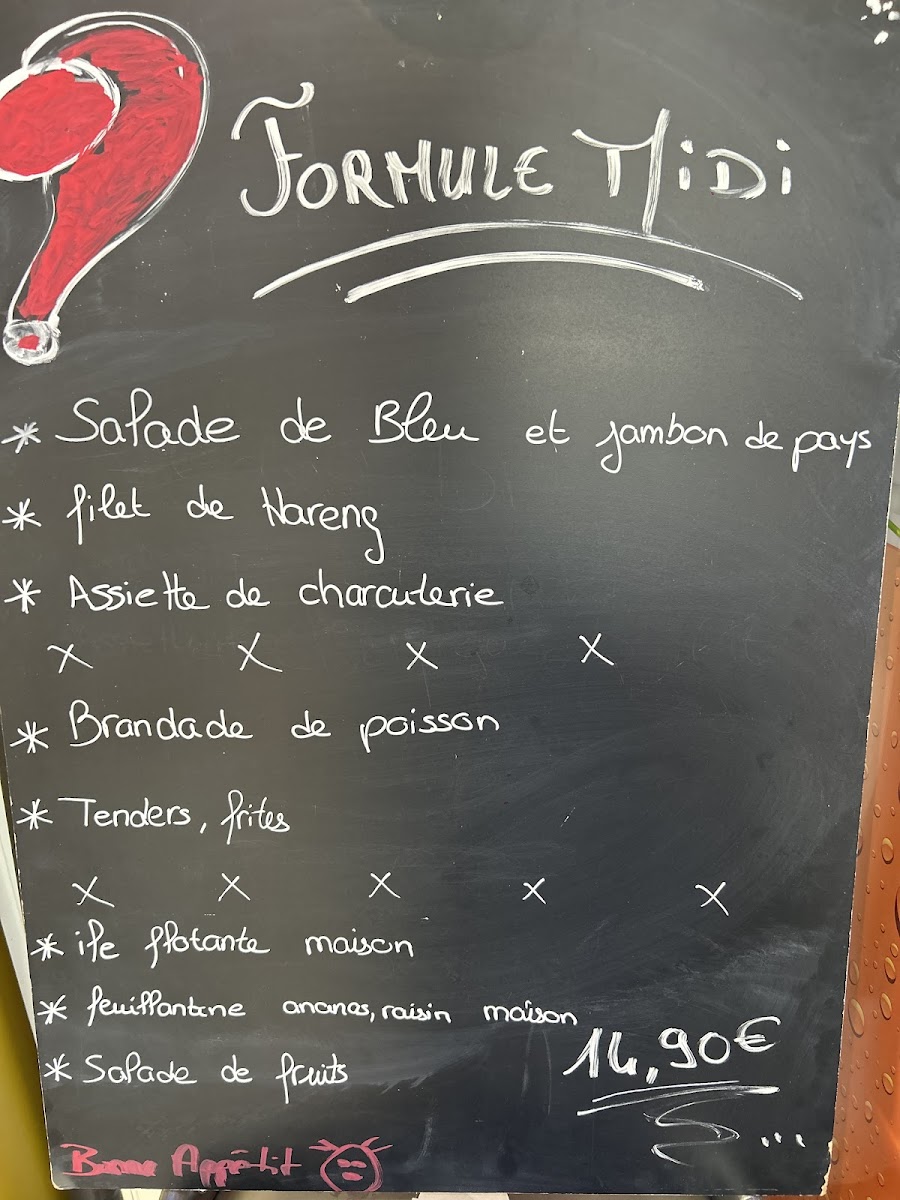 FORMULE MiDi
* Salade de Bleu et jambon de pays
* filet de Hareng
* Assiette de charcuterie
X X X X
* Brandade de poisson
* Tenders, frites
X X X X X
* ile flotante maison
* feuillantine ananas, raisin maison
* Salade de fruits
14,90€
...
Bonne Appétit